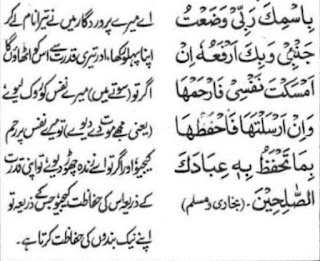 بِاسْمِكَ رَبِّيْ وَضَعْتُ
جَنْۢبِيْ وَبِكَ اَرْفَعُهٗ اِنْ
اَمْسَكْتَ نَفْسِيْ فَارْحَمْهَا
وَاِنْ اَرْسَلْتَهَا فَاحْفَظْهَا
بِمَا تَحْفَظُ بِهٖ عِبَادَكَ
الصّٰلِحِيْنَ۔ (بخاری ومسلم)
اے میرے پروردگار میں نے تیرا نام لے کے
اپنا پہلو رکھا، اور تیری قدرت سے اس کو اٹھاؤں گا
اگر تو (سوتے میں) میرے نفس کو روک لیوے
(یعنی مجھے موت دے دیوے) تو میرے نفس پر رحم
کیجیو اور اگر تو اسے زندہ چھوڑ دیوے تو اپنی قدرت
کے ذریعہ اس کی حفاظت کیجیو جس کے ذریعہ تو
اپنے نیک بندوں کی حفاظت کرتا ہے۔